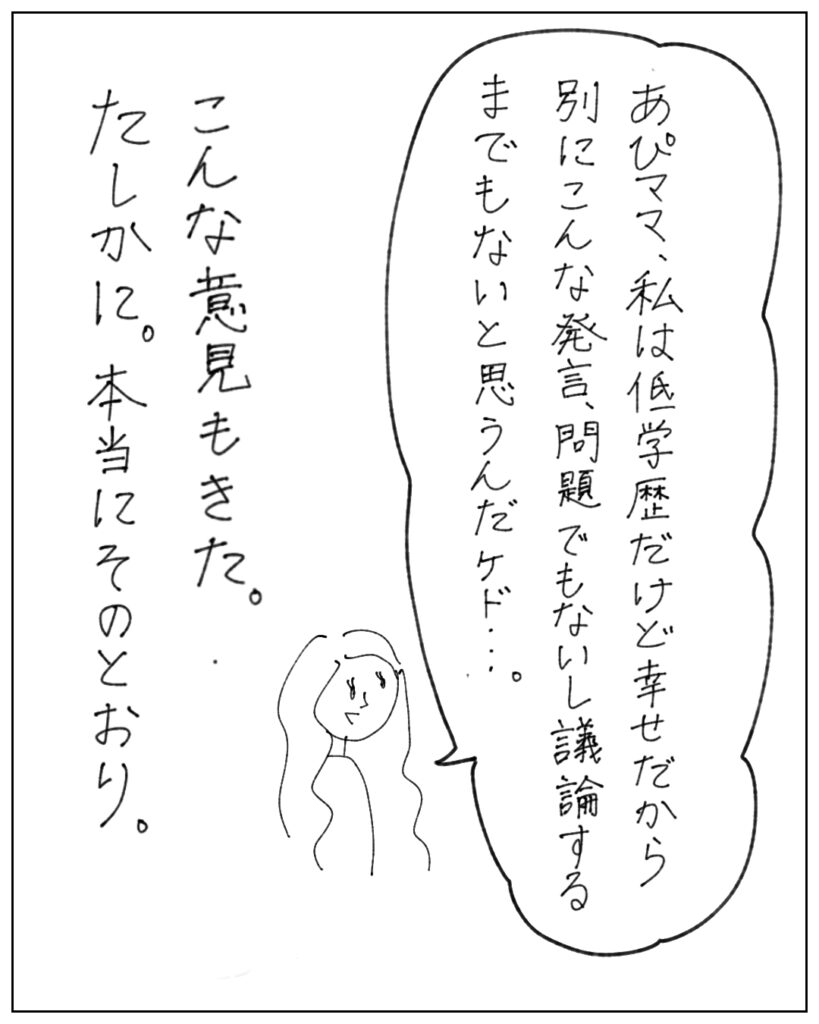 あぴママ、私は低学歴だけど幸せだから
別にこんな発言、問題でもないし議論する
までもないと思うんだケド…。
こんな意見もきた。
たしかに。本当にそのとおり。